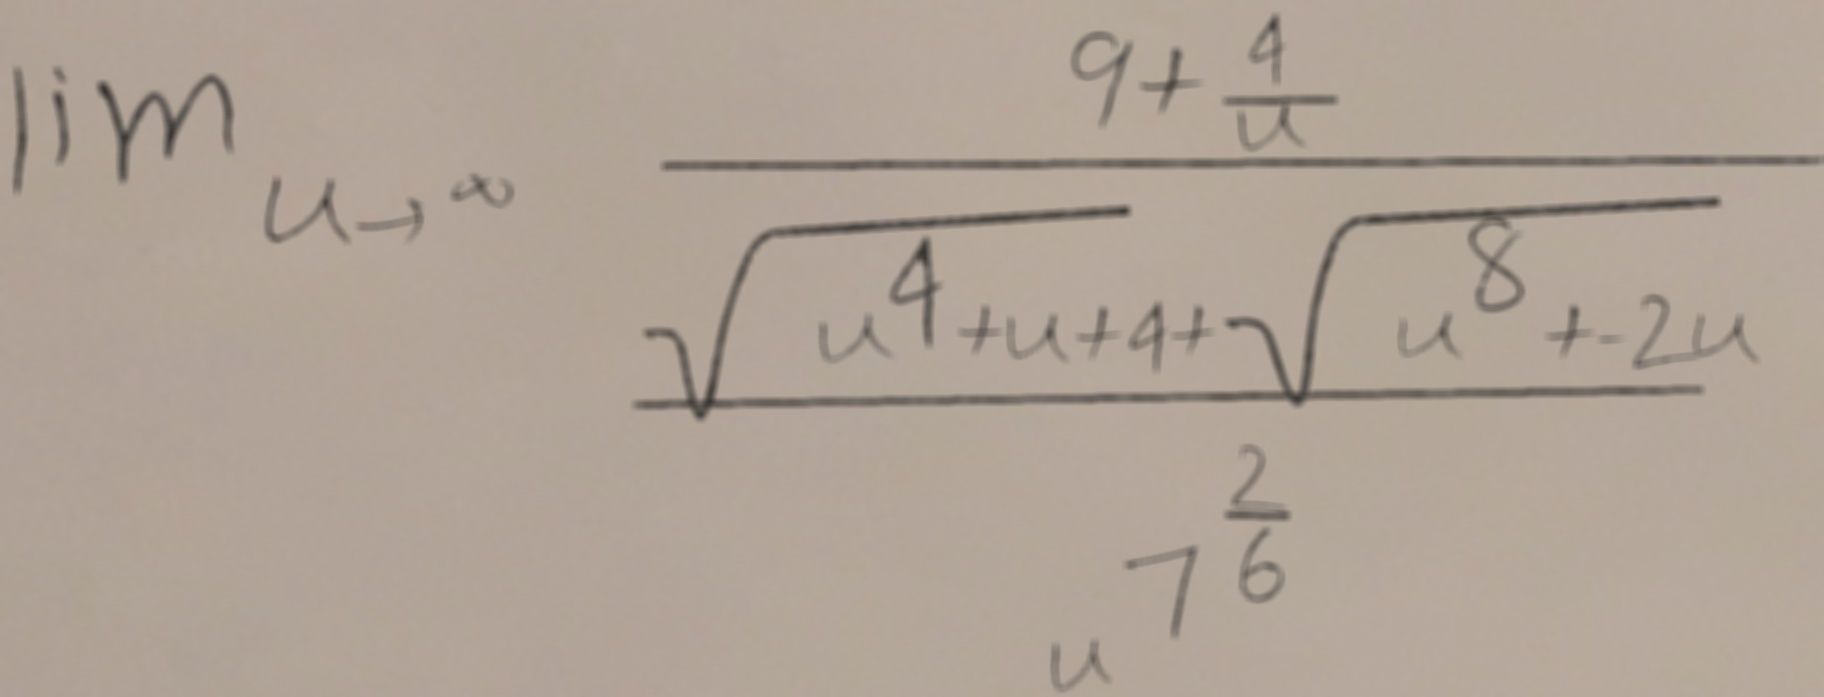 \lim_{u \to \infty} \frac{9+\frac{4}{u}}{\frac{\sqrt{u^4}+u+4+\sqrt{u^8}+-2u}{u^{7^{\frac{2}{6}}}}}